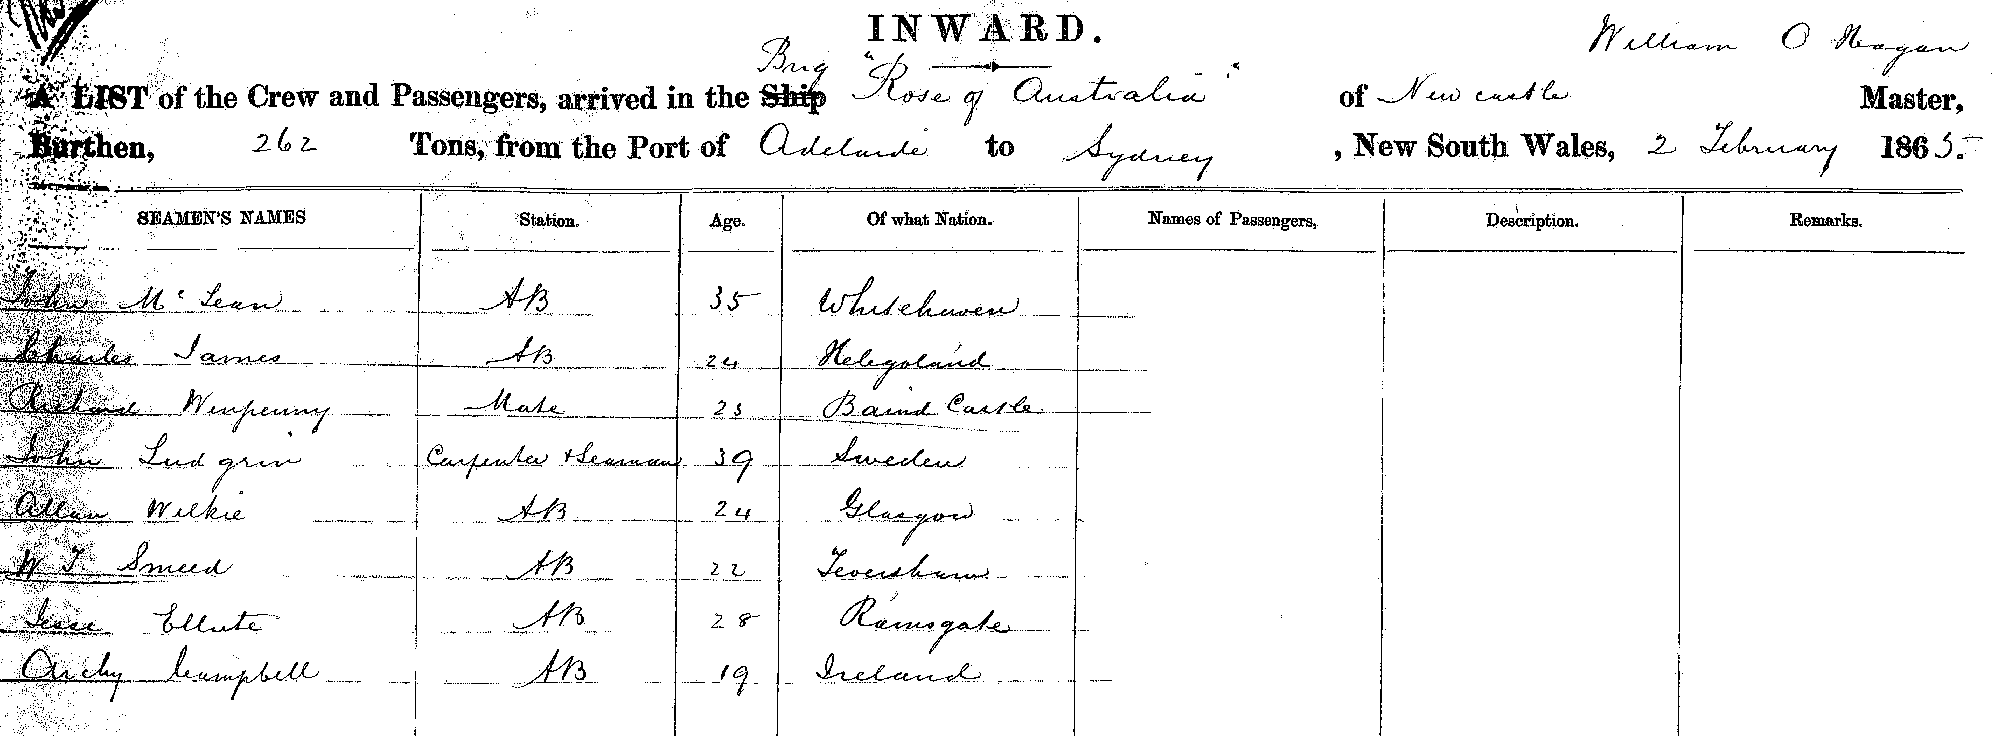 INWARD.
William O Hagan
Brig
A LIST of the Crew and Passengers, arrived in the Ship "Rose of Australia" of Newcastle Master,
Burthen, 262 Tons, from the Port of Adelaide to Sydney, New South Wales, 2 February 1865.
SEAMEN'S NAMES Station. Age. Of what Nation. Names of Passengers, Description. Remarks.
John McLean AB 35 Whitehaven
Charles James AB 24 Helegoland
Richard Winpenny Mate 23 Castle
John Ludgrin Carpenter & Seaman 39 Sweden
Allan Wilkie AB 24 Glasgow
W T Smeed AB 22 Feversham
Jesse AB 28 Ramsgate
Archy Campbell AB 19 Ireland